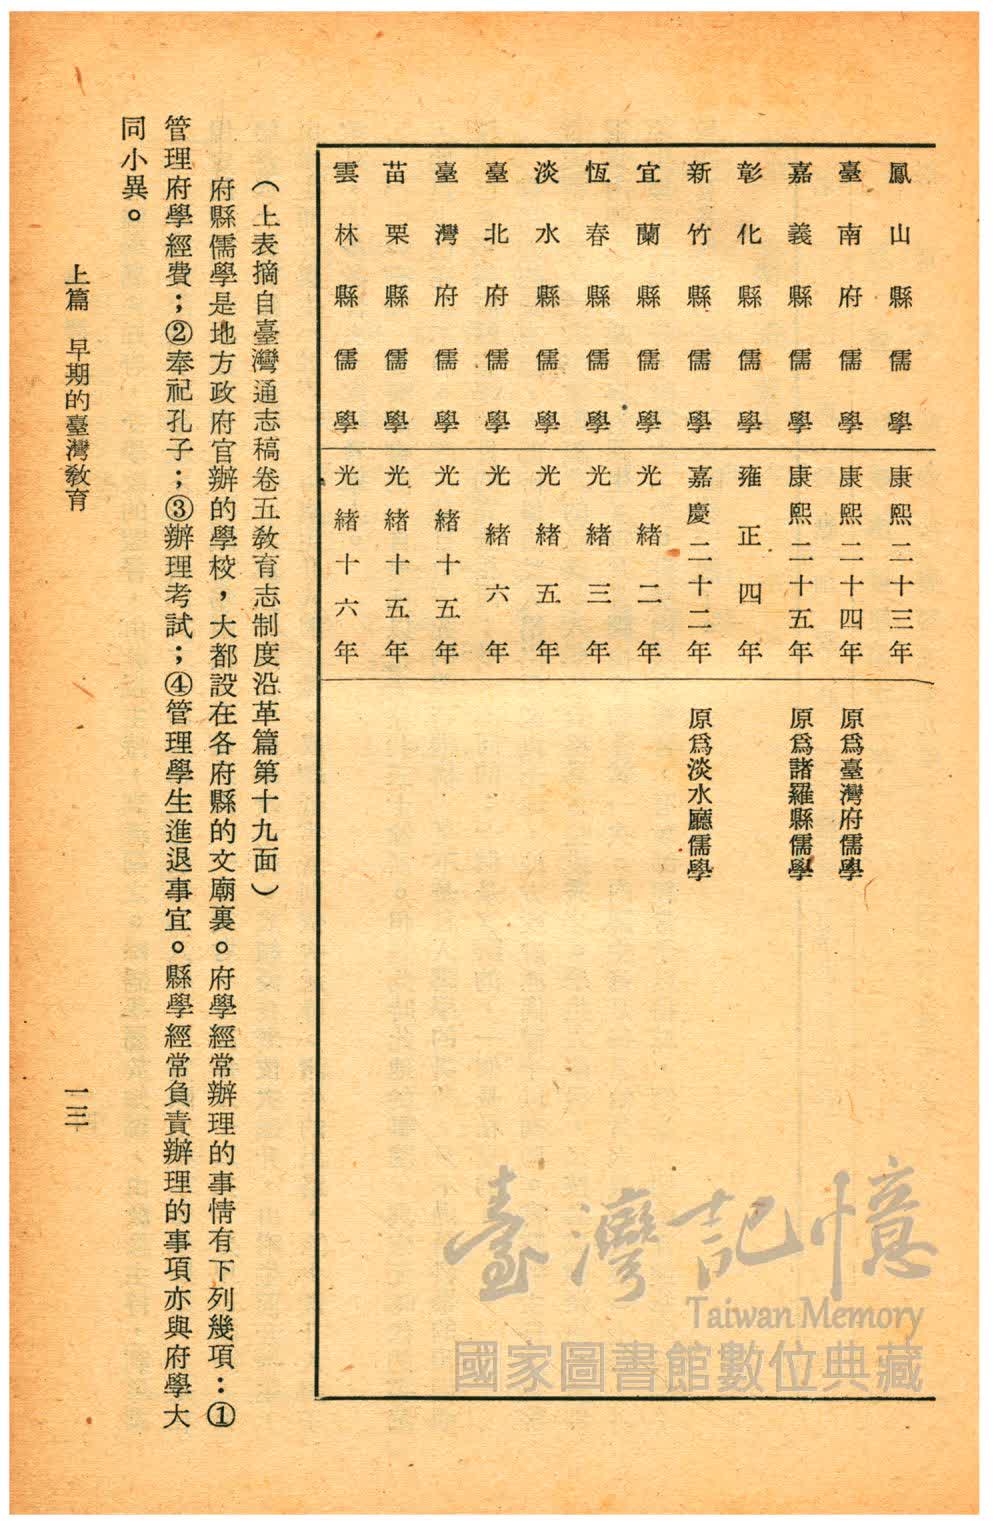 鳳山縣儒學　康熙二十三年
臺南府儒學　康熙二十四年　原爲臺灣府儒學
嘉義縣儒學　康熙二十五年　原爲諸羅縣儒學
彰化縣儒學　雍正四年
新竹縣儒學　嘉慶二十二年　原爲淡水廳儒學
宜蘭縣儒學　光緒二年
恆春縣儒學　光緒三年
淡水縣儒學　光緒五年
臺北府儒學　光緒六年
臺灣府儒學　光緒十五年
苗栗縣儒學　光緒十五年
雲林縣儒學　光緒十六年
（上表摘自臺灣通志稿卷五敎育志制度沿革篇第十九面）
府縣儒學是地方政府官辦的學校，大都設在各府縣的文廟裏。府學經常辦理的事情有下列幾項：①
管理府學經費；②奉祀孔子；③辦理考試；④管理學生進退事宜。縣學經常負責辦理的事項亦與府學大
同小異。
上篇　早期的臺灣敎育
一三
臺灣記憶
Taiwan Memory
國家圖書館數位典藏